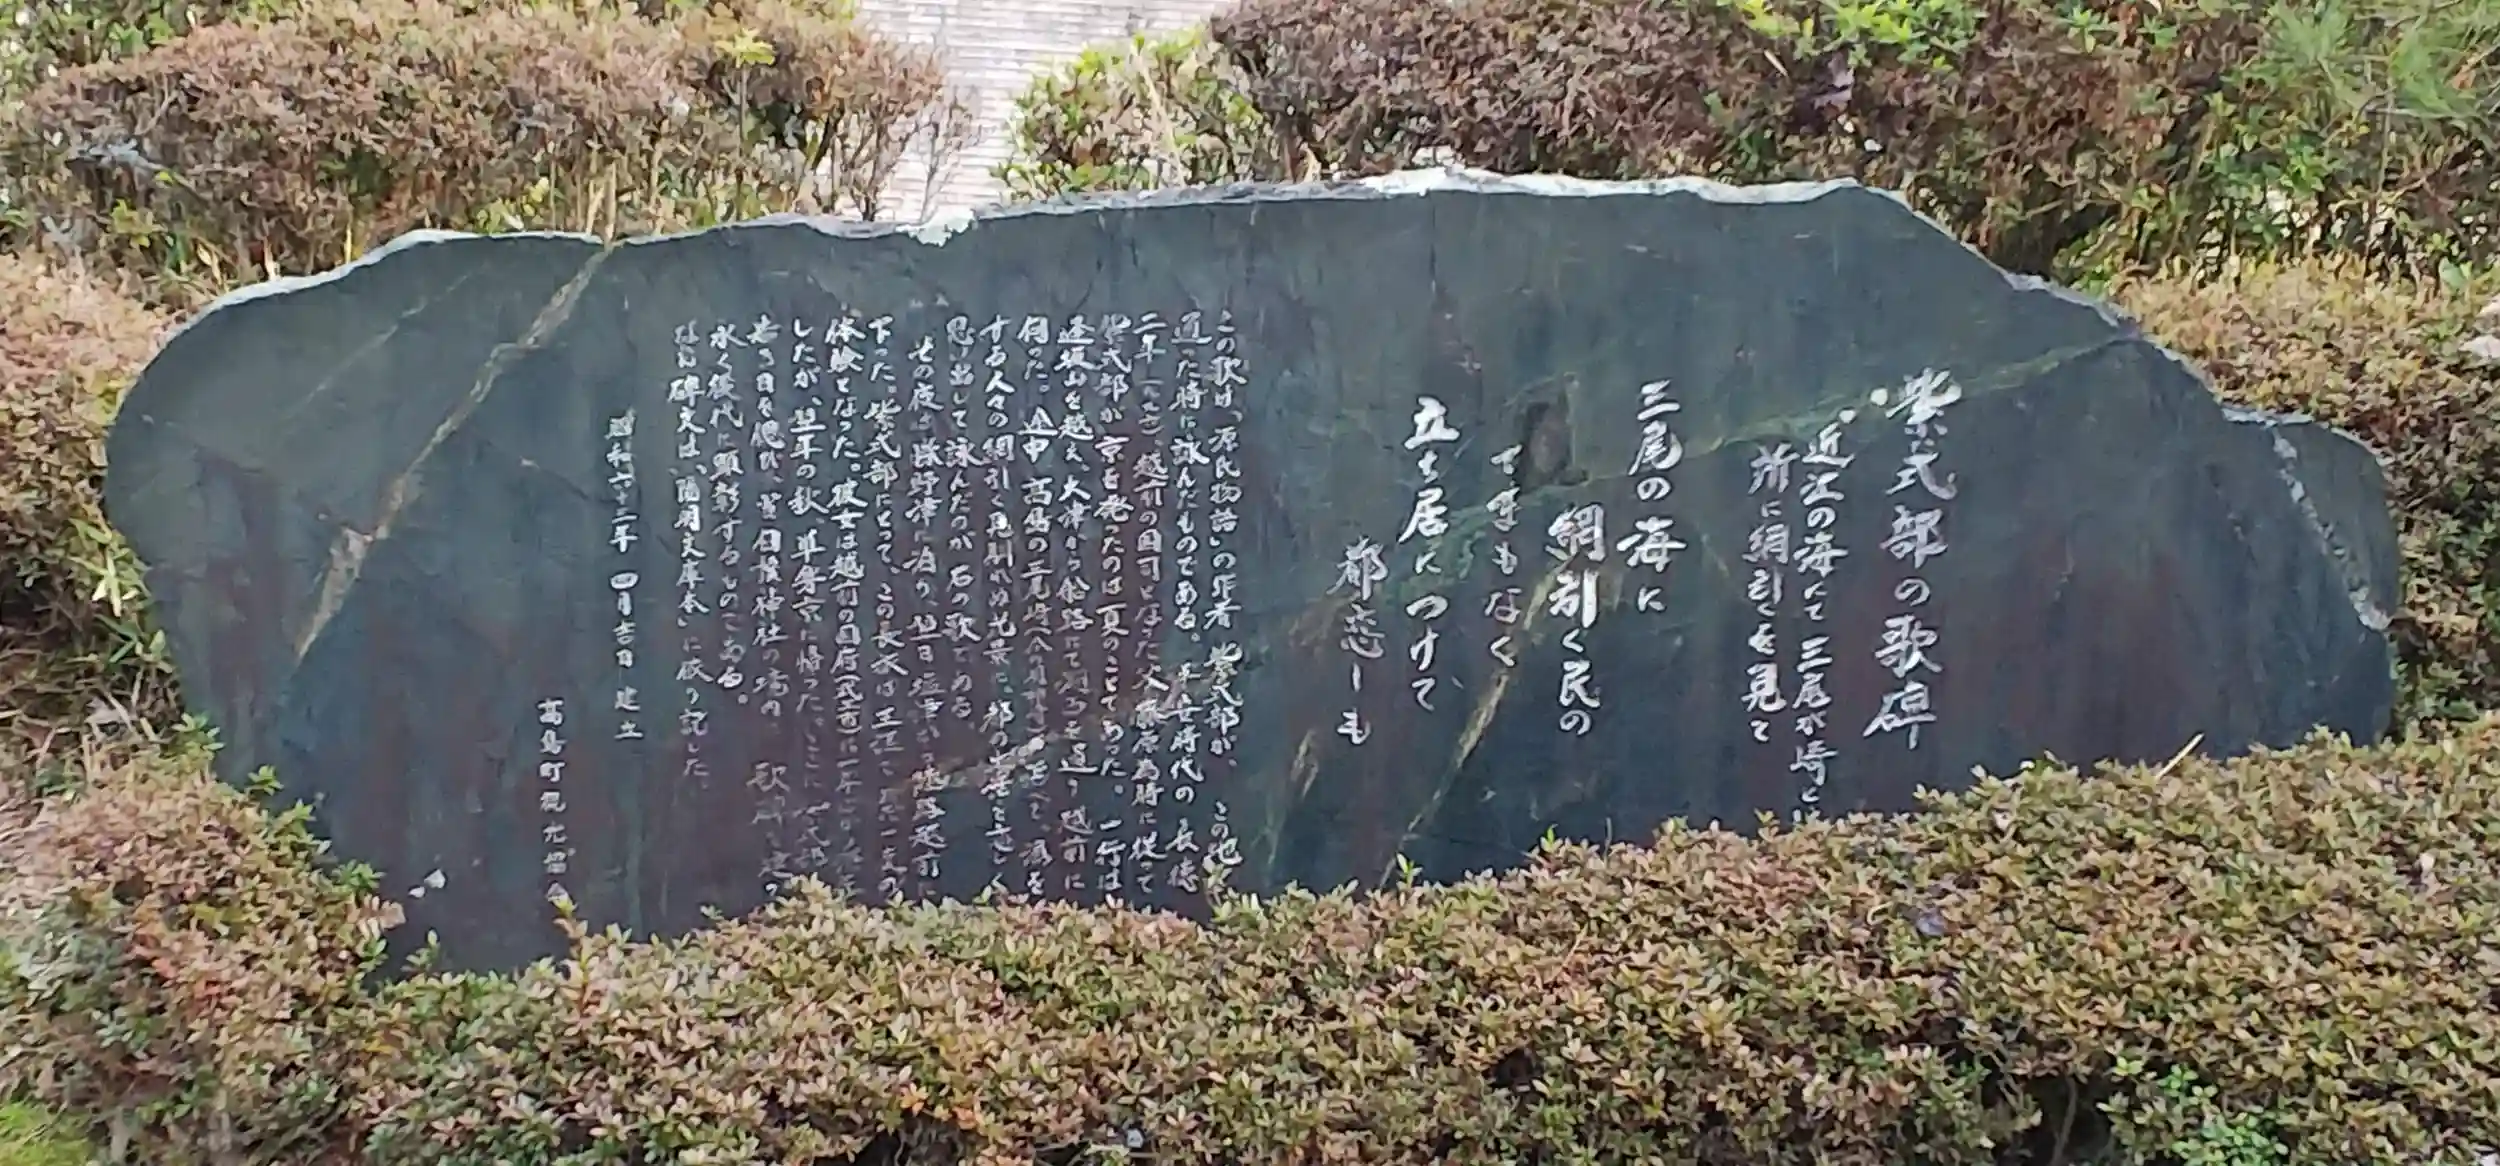 紫式部の歌碑
近江の海にて三尾が崎と
所に網引くを見て
三尾の海に
網引く民の
てまもなく
立ち居につけて
都恋しも
この歌は「源氏物語」の作者 紫式部が、この地
通った時に詠んだものである。平安時代の長徳
二年 越前の国司となった父藤原為時に従て
紫式部が京を発ったのは夏のことであった。一行は
逢坂山を越え、大津から船路にて 越前に
向った。途中 高島の三尾崎 
する人々の網引く見馴れぬ光景に、都の
思い出して詠んだのが右の歌である。
その夜 津に泊り、翌日塩津から陸路越前に
下った。紫式部にとって、この長旅は生涯で
体験となった。彼女は越前の国府(武生市)に
したが、翌年の秋、単身京に帰った。ここに
日を偲び、白鬚神社の 歌碑
永く後代に顕彰するものである。
なお碑文は、陽明文庫本」に依り記した。
昭和六十三年 四月吉日 建立
高島町観光協会